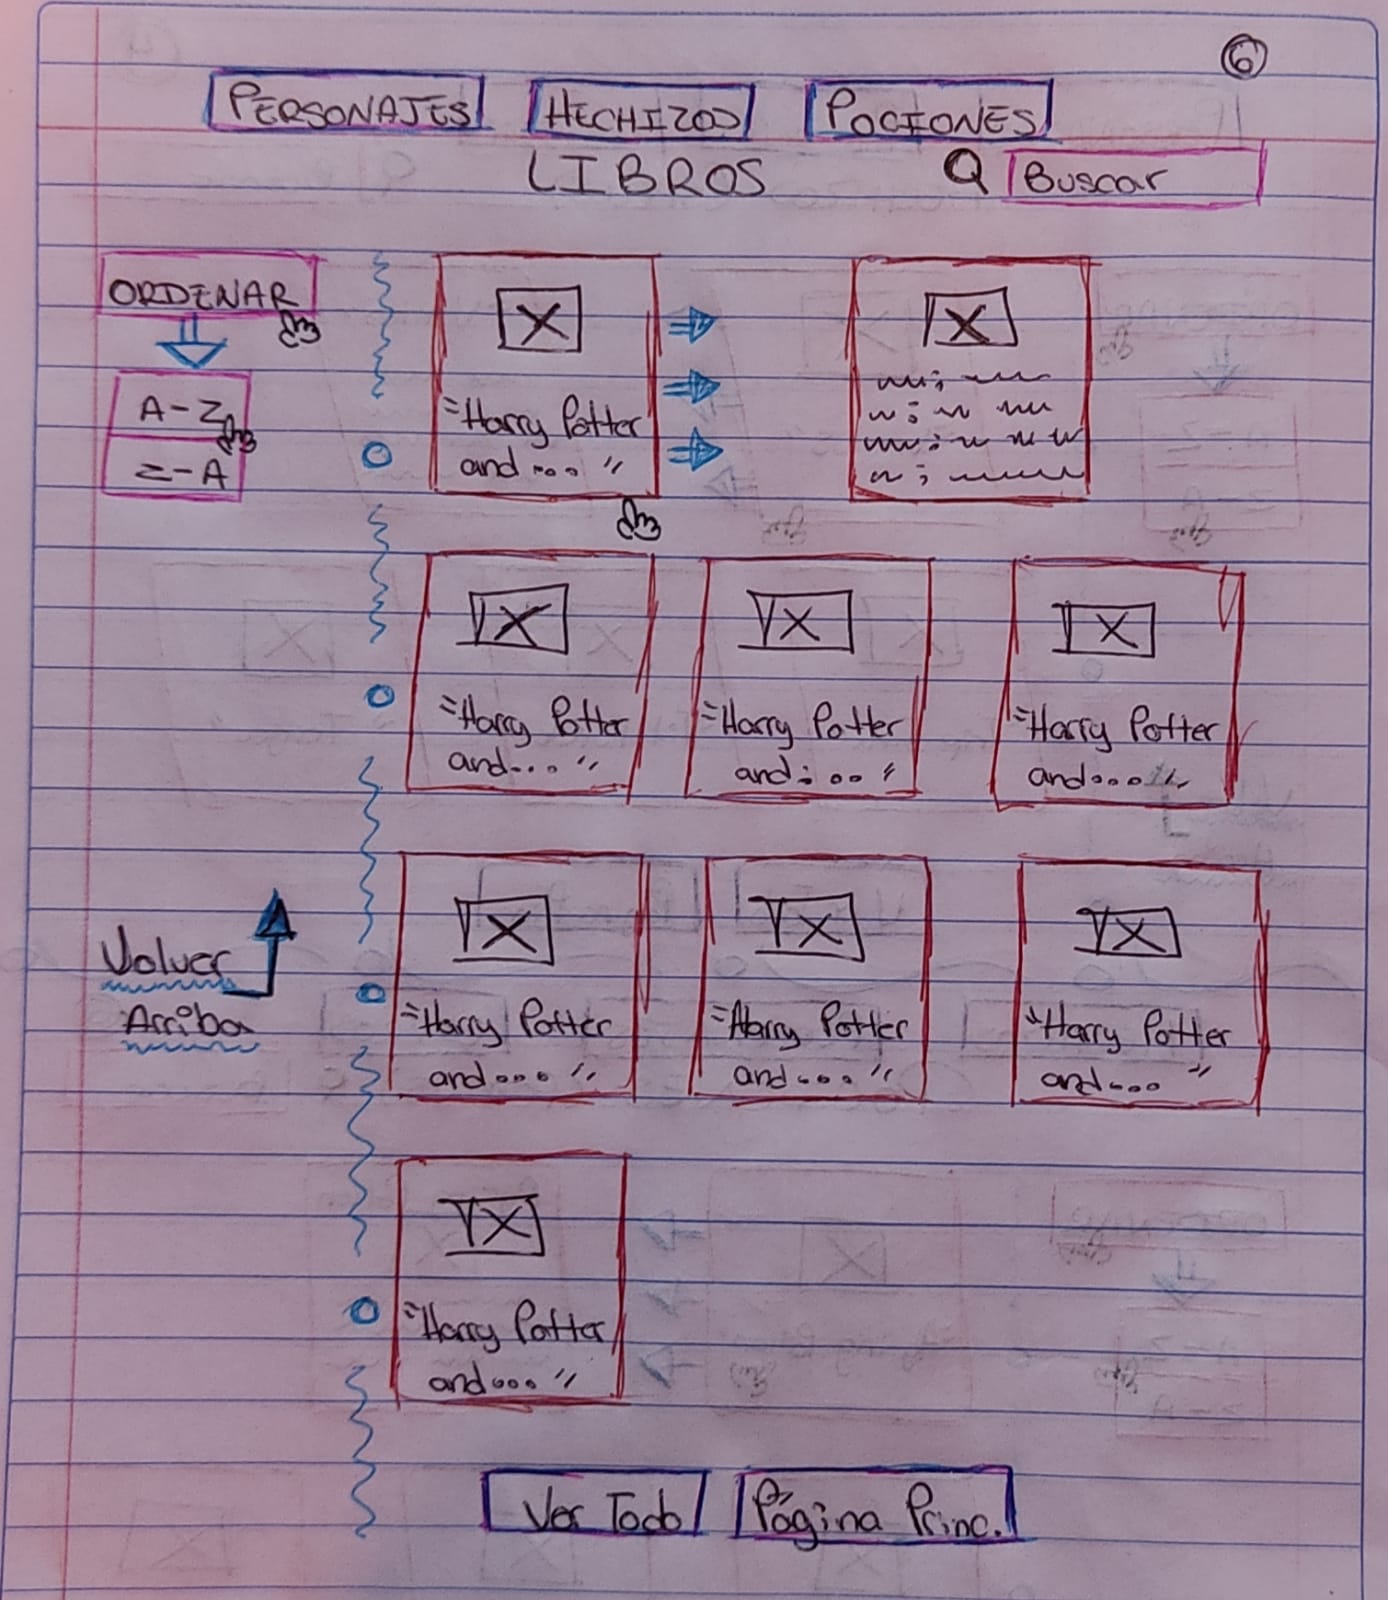 6
PERSONAJES HECHIZOS POCIONES
LIBROS Buscar
ORDENAR
A-Z
Z-A
"Harry Potter
and ... "
"Harry Potter
and... "
"Harry Potter
and... "
"Harry Potter
and... "
Volver
Arriba
"Harry Potter
and... "
"Harry Potter
and... "
"Harry Potter
and... "
"Harry Potter
and... "
Ver Todo Página Princ.